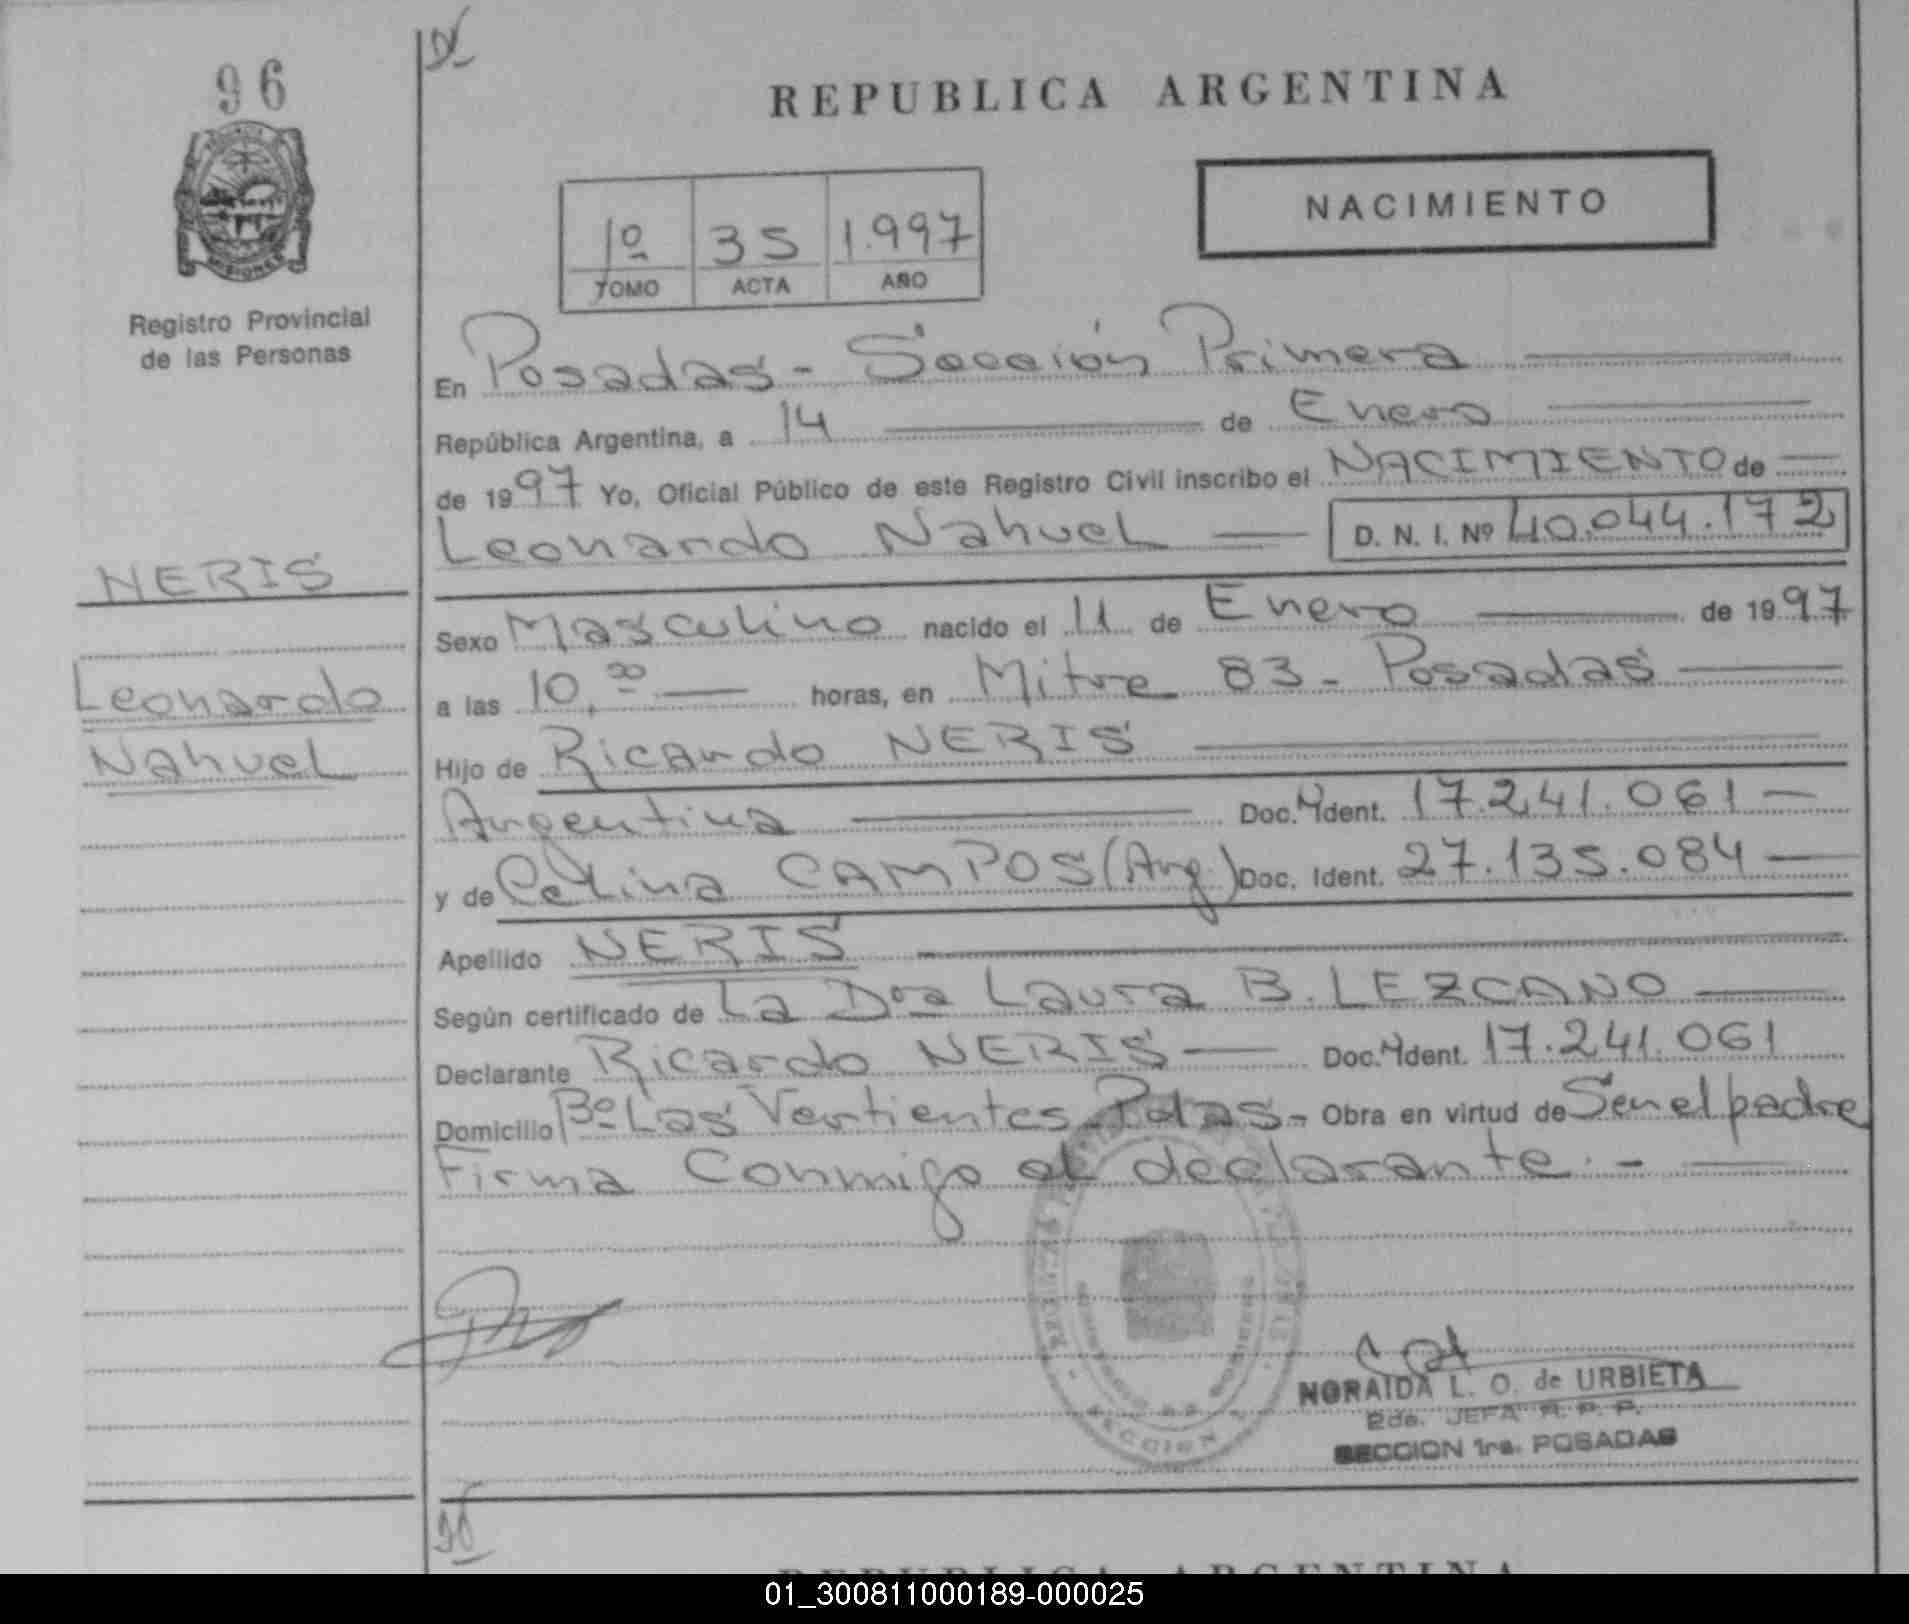 96
REPUBLICA ARGENTINA
MISIONES
NACIMIENTO
1º 35 1.997
TOMO ACTA AÑO
Registro Provincial
de las Personas
En Posadas - Sección Primera
República Argentina, a 14 de Enero
de 1997 Yo, Oficial Público de este Registro Civil inscribo el NACIMIENTO de
Leonardo Nahuel D. N. I. Nº 40.044.172
NERIS
Leonardo
Nahuel
Sexo Masculino nacido el 11 de Enero de 1997
a las 10,00 horas, en Mitre 83 - Posadas
Hijo de Ricardo NERIS
Argentina Doc. Ident. 17.241.061
y de Celina CAMPOS (Arg.) Doc. Ident. 27.135.084
Apellido NERIS
Según certificado de La Dra Laura B. LEZCANO
Declarante Ricardo NERIS Doc. Ident. 17.241.061
Domicilio Bº Las Vertientes - Pdas - Obra en virtud de Ser el padre
Firma Conmigo el declarante. -
SECCION
NORAIDA L. O. de URBIETA
2da. JEFA R. P. P.
SECCION 1ra. POSADAS
REPUBLICA ARGENTINA
01_300811000189-000025